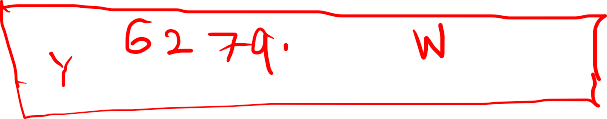 Y 6279. W